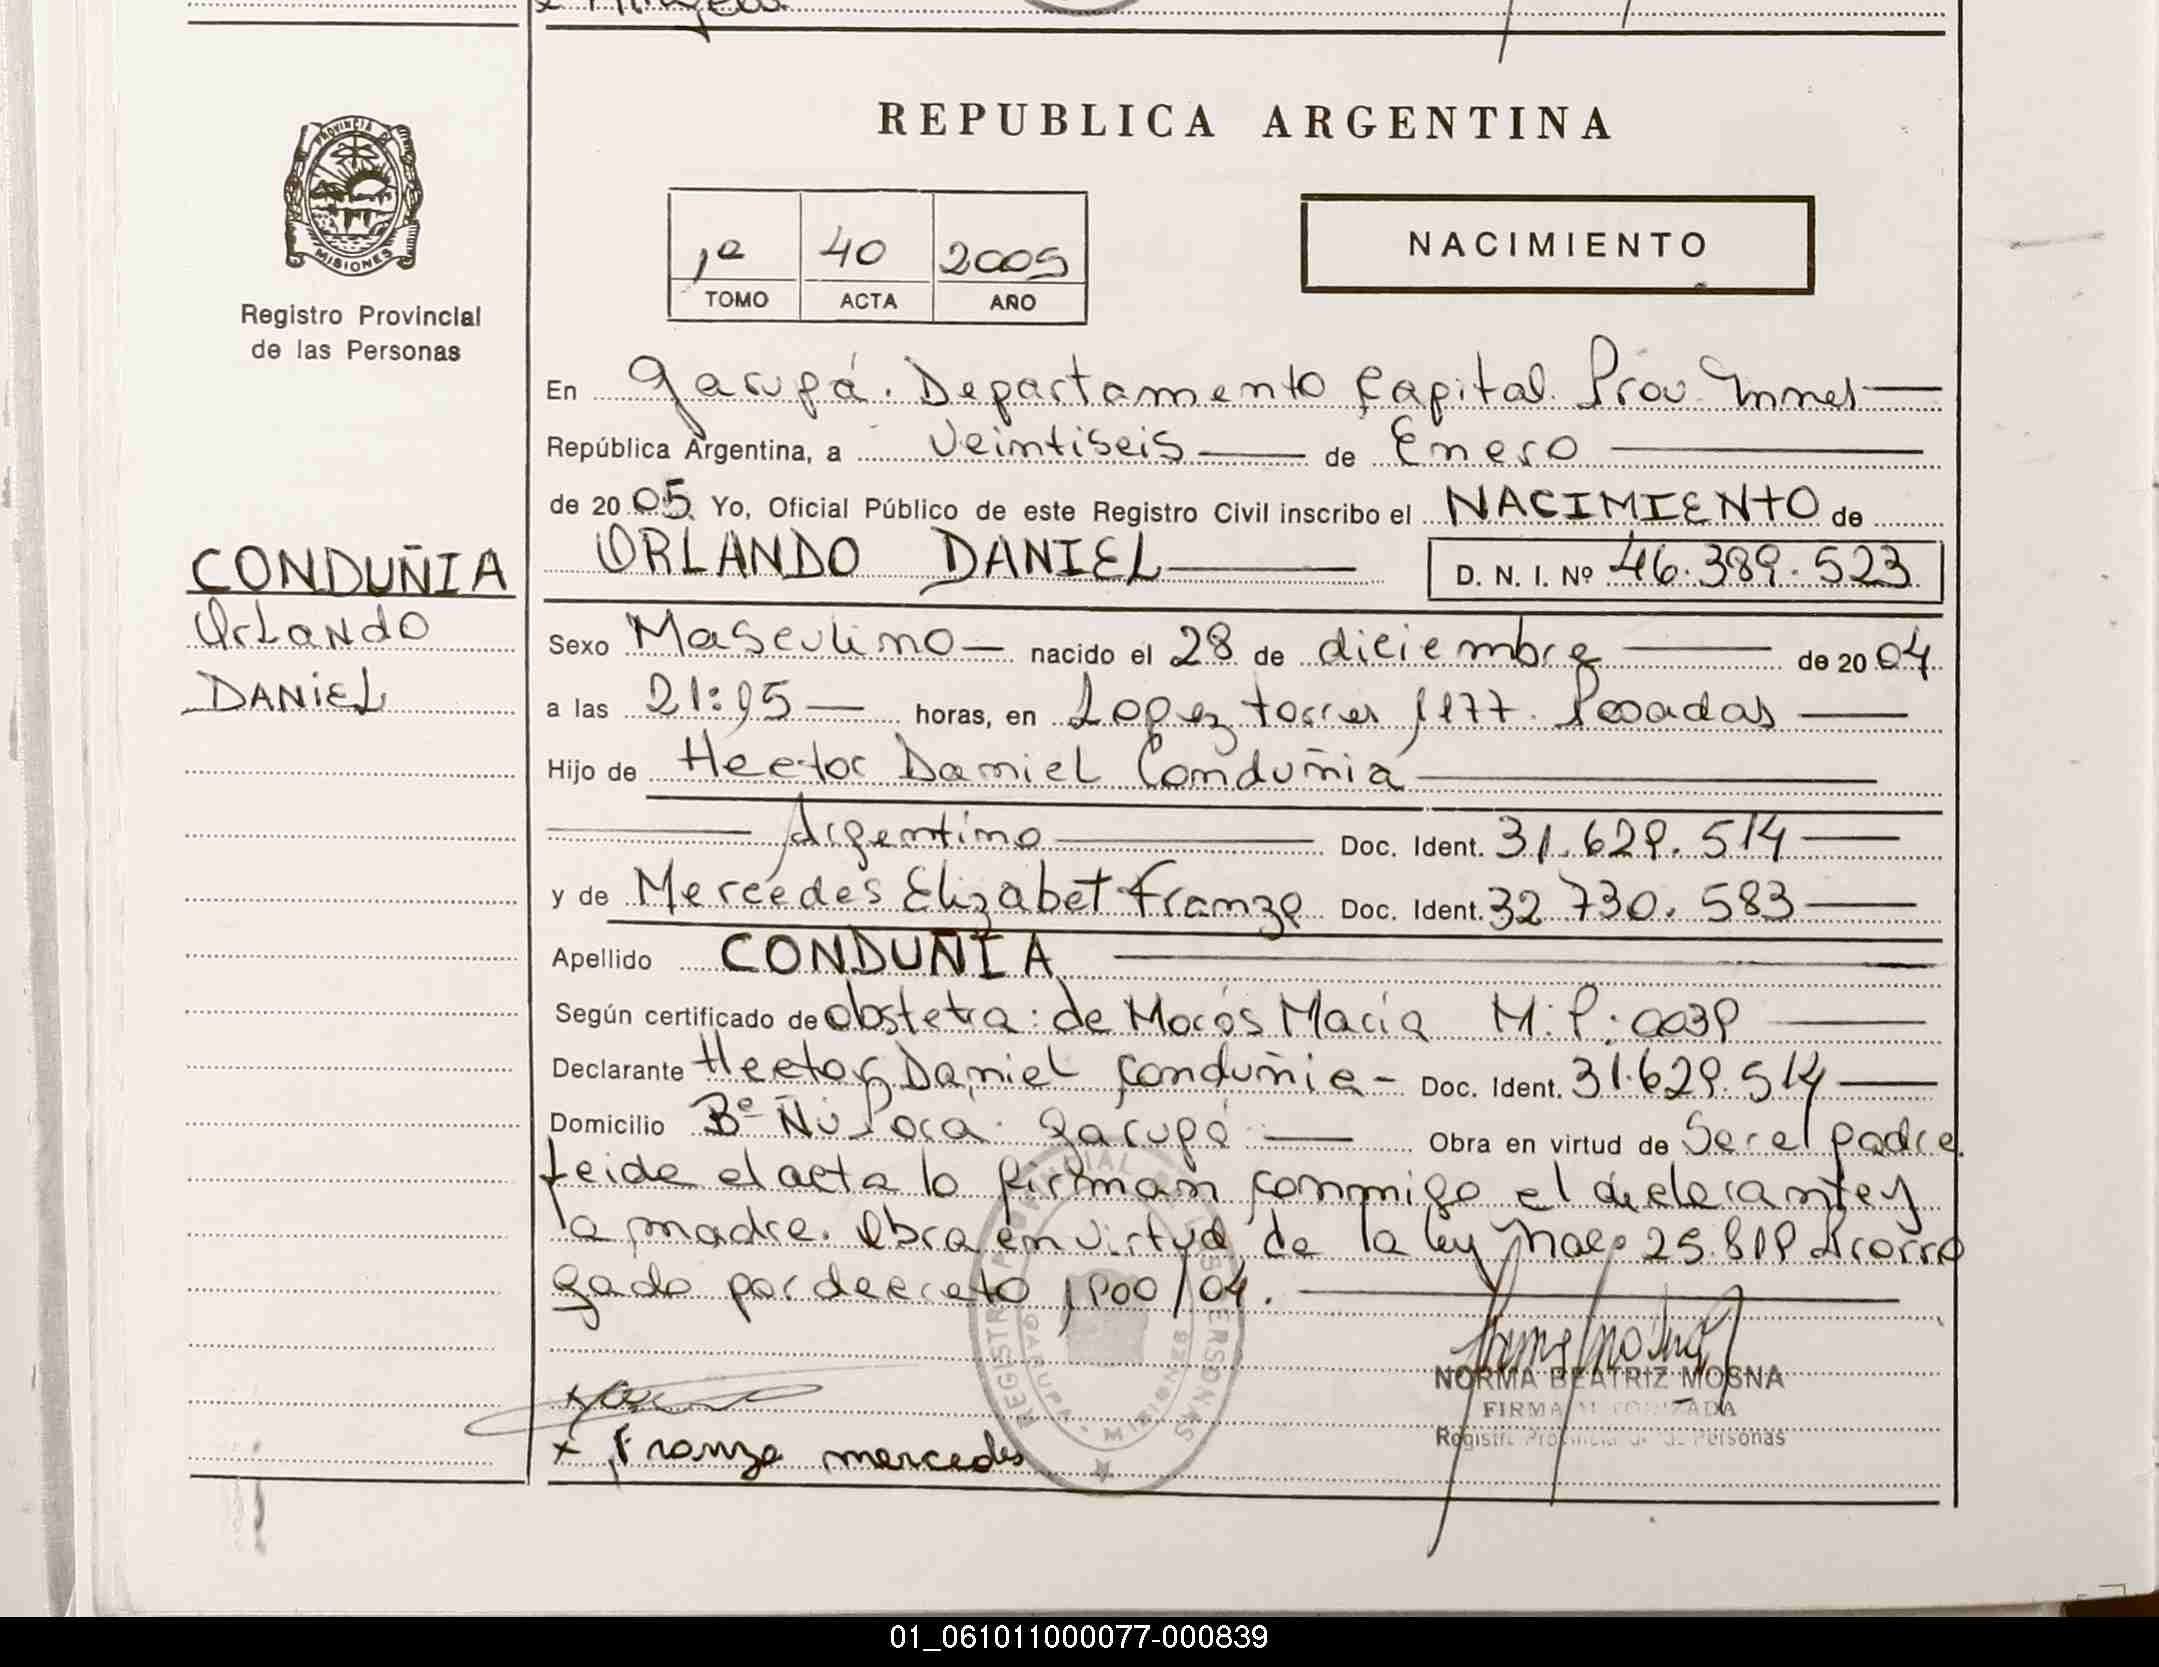 REPUBLICA ARGENTINA
PROVINCIA DE
MISIONES
Registro Provincial
de las Personas
1º 40 2005
TOMO ACTA AÑO
NACIMIENTO
En Garupá. Departamento Capital. Prov. Mnes
República Argentina, a Veintiseis de Enero
de 2005 Yo, Oficial Público de este Registro Civil inscribo el NACIMIENTO de
ORLANDO DANIEL D. N. I. Nº 46.389.523
CONDUÑIA
Orlando
DANIEL
Sexo Masculino nacido el 28 de diciembre de 2004
a las 21: horas, en Lopez torres 1177. Posadas
Hijo de Hector Daniel Conduñia
Argentino Doc. Ident. 31.629.514
y de Mercedes Elizabet Franze Doc. Ident. 32 730.583
Apellido CONDUÑIA
Según certificado de obstetra: de María M.P.: 0039
Declarante Hector Daniel Conduñia - Doc. Ident. 31.629.514
Domicilio Bº Ñu Porá. Garupá Obra en virtud de Ser el padre
leida el acta lo firman conmigo el declarante y
la madre. Obra en virtud de la ley 25.819 Prorro
gado por decreto 1900/04.
REGISTRO PROVINCIAL DE LAS PERSONAS
GARUPA - MISIONES
NORMA BEATRIZ MOSNA
FIRMA AUTORIZADA
Registro Provincial de las Personas
x Franze mercedes
01_061011000077-000839